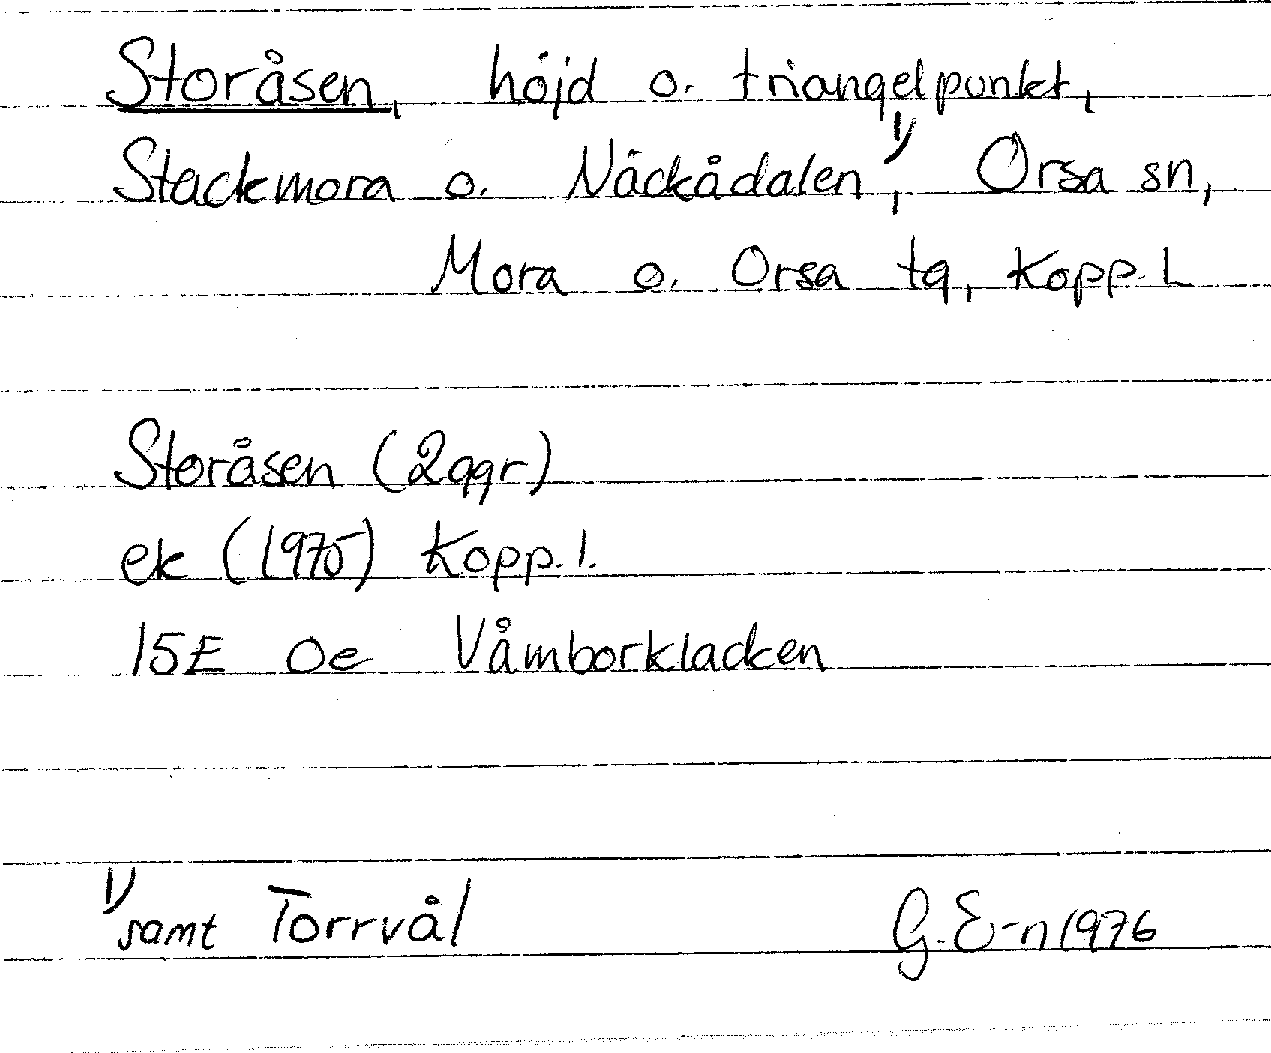 Storåsen, höjd o. triangelpunkt,
Stackmora o. Näckådalen 1), Orsa sn,
Mora o. Orsa tg, Kopp. l.
Storåsen (2 ggr)
ek (1975) Kopp. l.
15E 0e Våmborkladken
1) samt Torrvål
G. E-n 1976